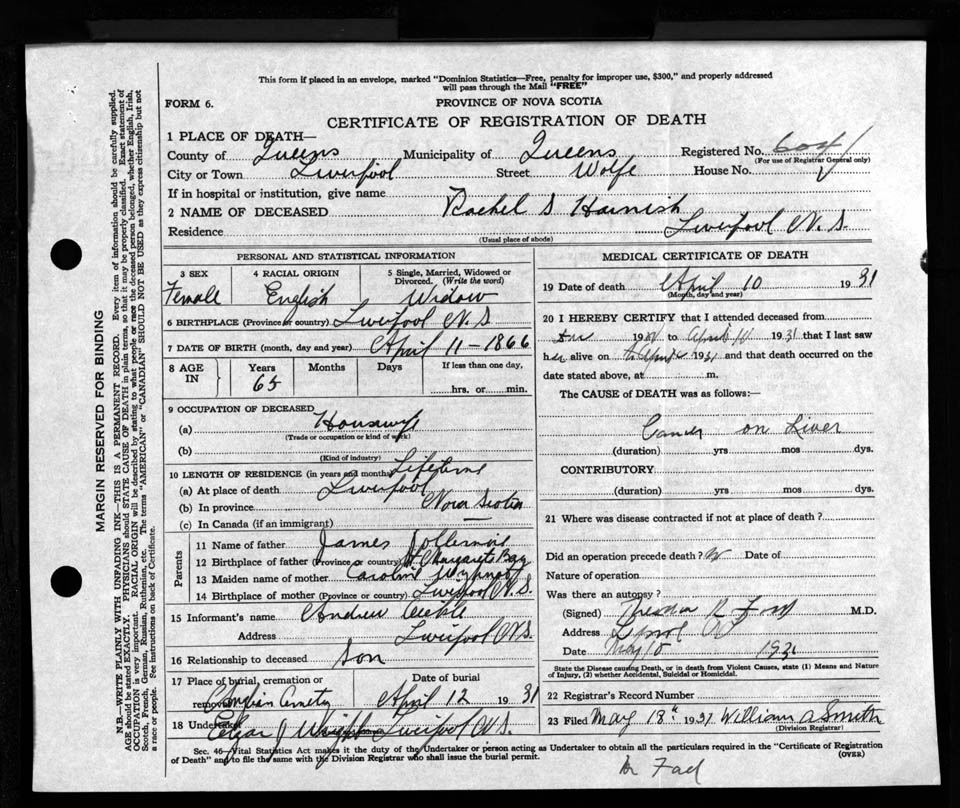 This form if placed in an envelope, marked "Dominion Statistics—Free, penalty for improper use, $300," and properly addressed
will pass through the Mail "FREE"
FORM 6.
PROVINCE OF NOVA SCOTIA
CERTIFICATE OF REGISTRATION OF DEATH
MARGIN RESERVED FOR BINDING
N.B.—WRITE PLAINLY WITH UNFADING INK—THIS IS A PERMANENT RECORD. Every item of information should be carefully supplied.
AGE should be stated EXACTLY. PHYSICIANS should STATE CAUSE OF DEATH in plain terms, so that it may be properly classified. Exact statement of
OCCUPATION is very important. RACIAL ORIGIN will be described by stating to what people or race the deceased person belonged, whether English, Irish,
Scotch, French, German, Russian, Ruthenian, etc. The terms "AMERICAN" or "CANADIAN" SHOULD NOT BE USED as they express citizenship but not
a race or people. See instructions on back of Certificate.
1 PLACE OF DEATH—
County of Queens Municipality of Queens Registered No.
(For use of Registrar General only)
City or Town Liverpool Street Wolfe House No.
If in hospital or institution, give name
2 NAME OF DECEASED Rachel S Harnish
Residence Liverpool N.S.
(Usual place of abode)
PERSONAL AND STATISTICAL INFORMATION
3 SEX 4 RACIAL ORIGIN 5 Single, Married, Widowed or
Divorced. (Write the word)
Female English Widow
6 BIRTHPLACE (Province or country) Liverpool N.S
7 DATE OF BIRTH (month, day and year) April 11-1866
8 AGE IN Years Months Days If less than one day,
65 hrs. or min.
9 OCCUPATION OF DECEASED
(a) Housewife
(Trade or occupation or kind of work)
(b)
(Kind of industry)
10 LENGTH OF RESIDENCE (in years and months) Lifetime
(a) At place of death Liverpool
(b) In province Nova Scotia
(c) In Canada (if an immigrant) —
Parents
11 Name of father James
12 Birthplace of father (Province or country) St Margarets Bay
13 Maiden name of mother Caroline
14 Birthplace of mother (Province or country) Liverpool N.S.
15 Informant's name Andrew
Address Liverpool N.S.
16 Relationship to deceased Son
17 Place of burial, cremation or removal Date of burial
Cemetery April 12 1931
18 Undertaker Liverpool N.S.
MEDICAL CERTIFICATE OF DEATH
19 Date of death April 10 1931
(Month, day and year)
20 I HEREBY CERTIFY that I attended deceased from
to April 10 1931 that I last saw
her alive on 1931 and that death occurred on the
date stated above, at m.
The CAUSE of DEATH was as follows:—
Cancer on Liver
(duration) yrs mos dys.
CONTRIBUTORY
(duration) yrs mos dys.
21 Where was disease contracted if not at place of death?
Did an operation precede death? Date of
Nature of operation
Was there an autopsy?
(Signed) M.D.
Address
Date 1931
State the Disease causing Death, or in death from Violent Causes, state (1) Means and Nature
of Injury, (2) whether Accidental, Suicidal or Homicidal.
22 Registrar's Record Number
23 Filed May 18th 1931 William A Smith
(Division Registrar)
Sec. 46—Vital Statistics Act makes it the duty of the Undertaker or person acting as Undertaker to obtain all the particulars required in the "Certificate of Registration
of Death" and to file the same with the Division Registrar who shall issue the burial permit.
(OVER)